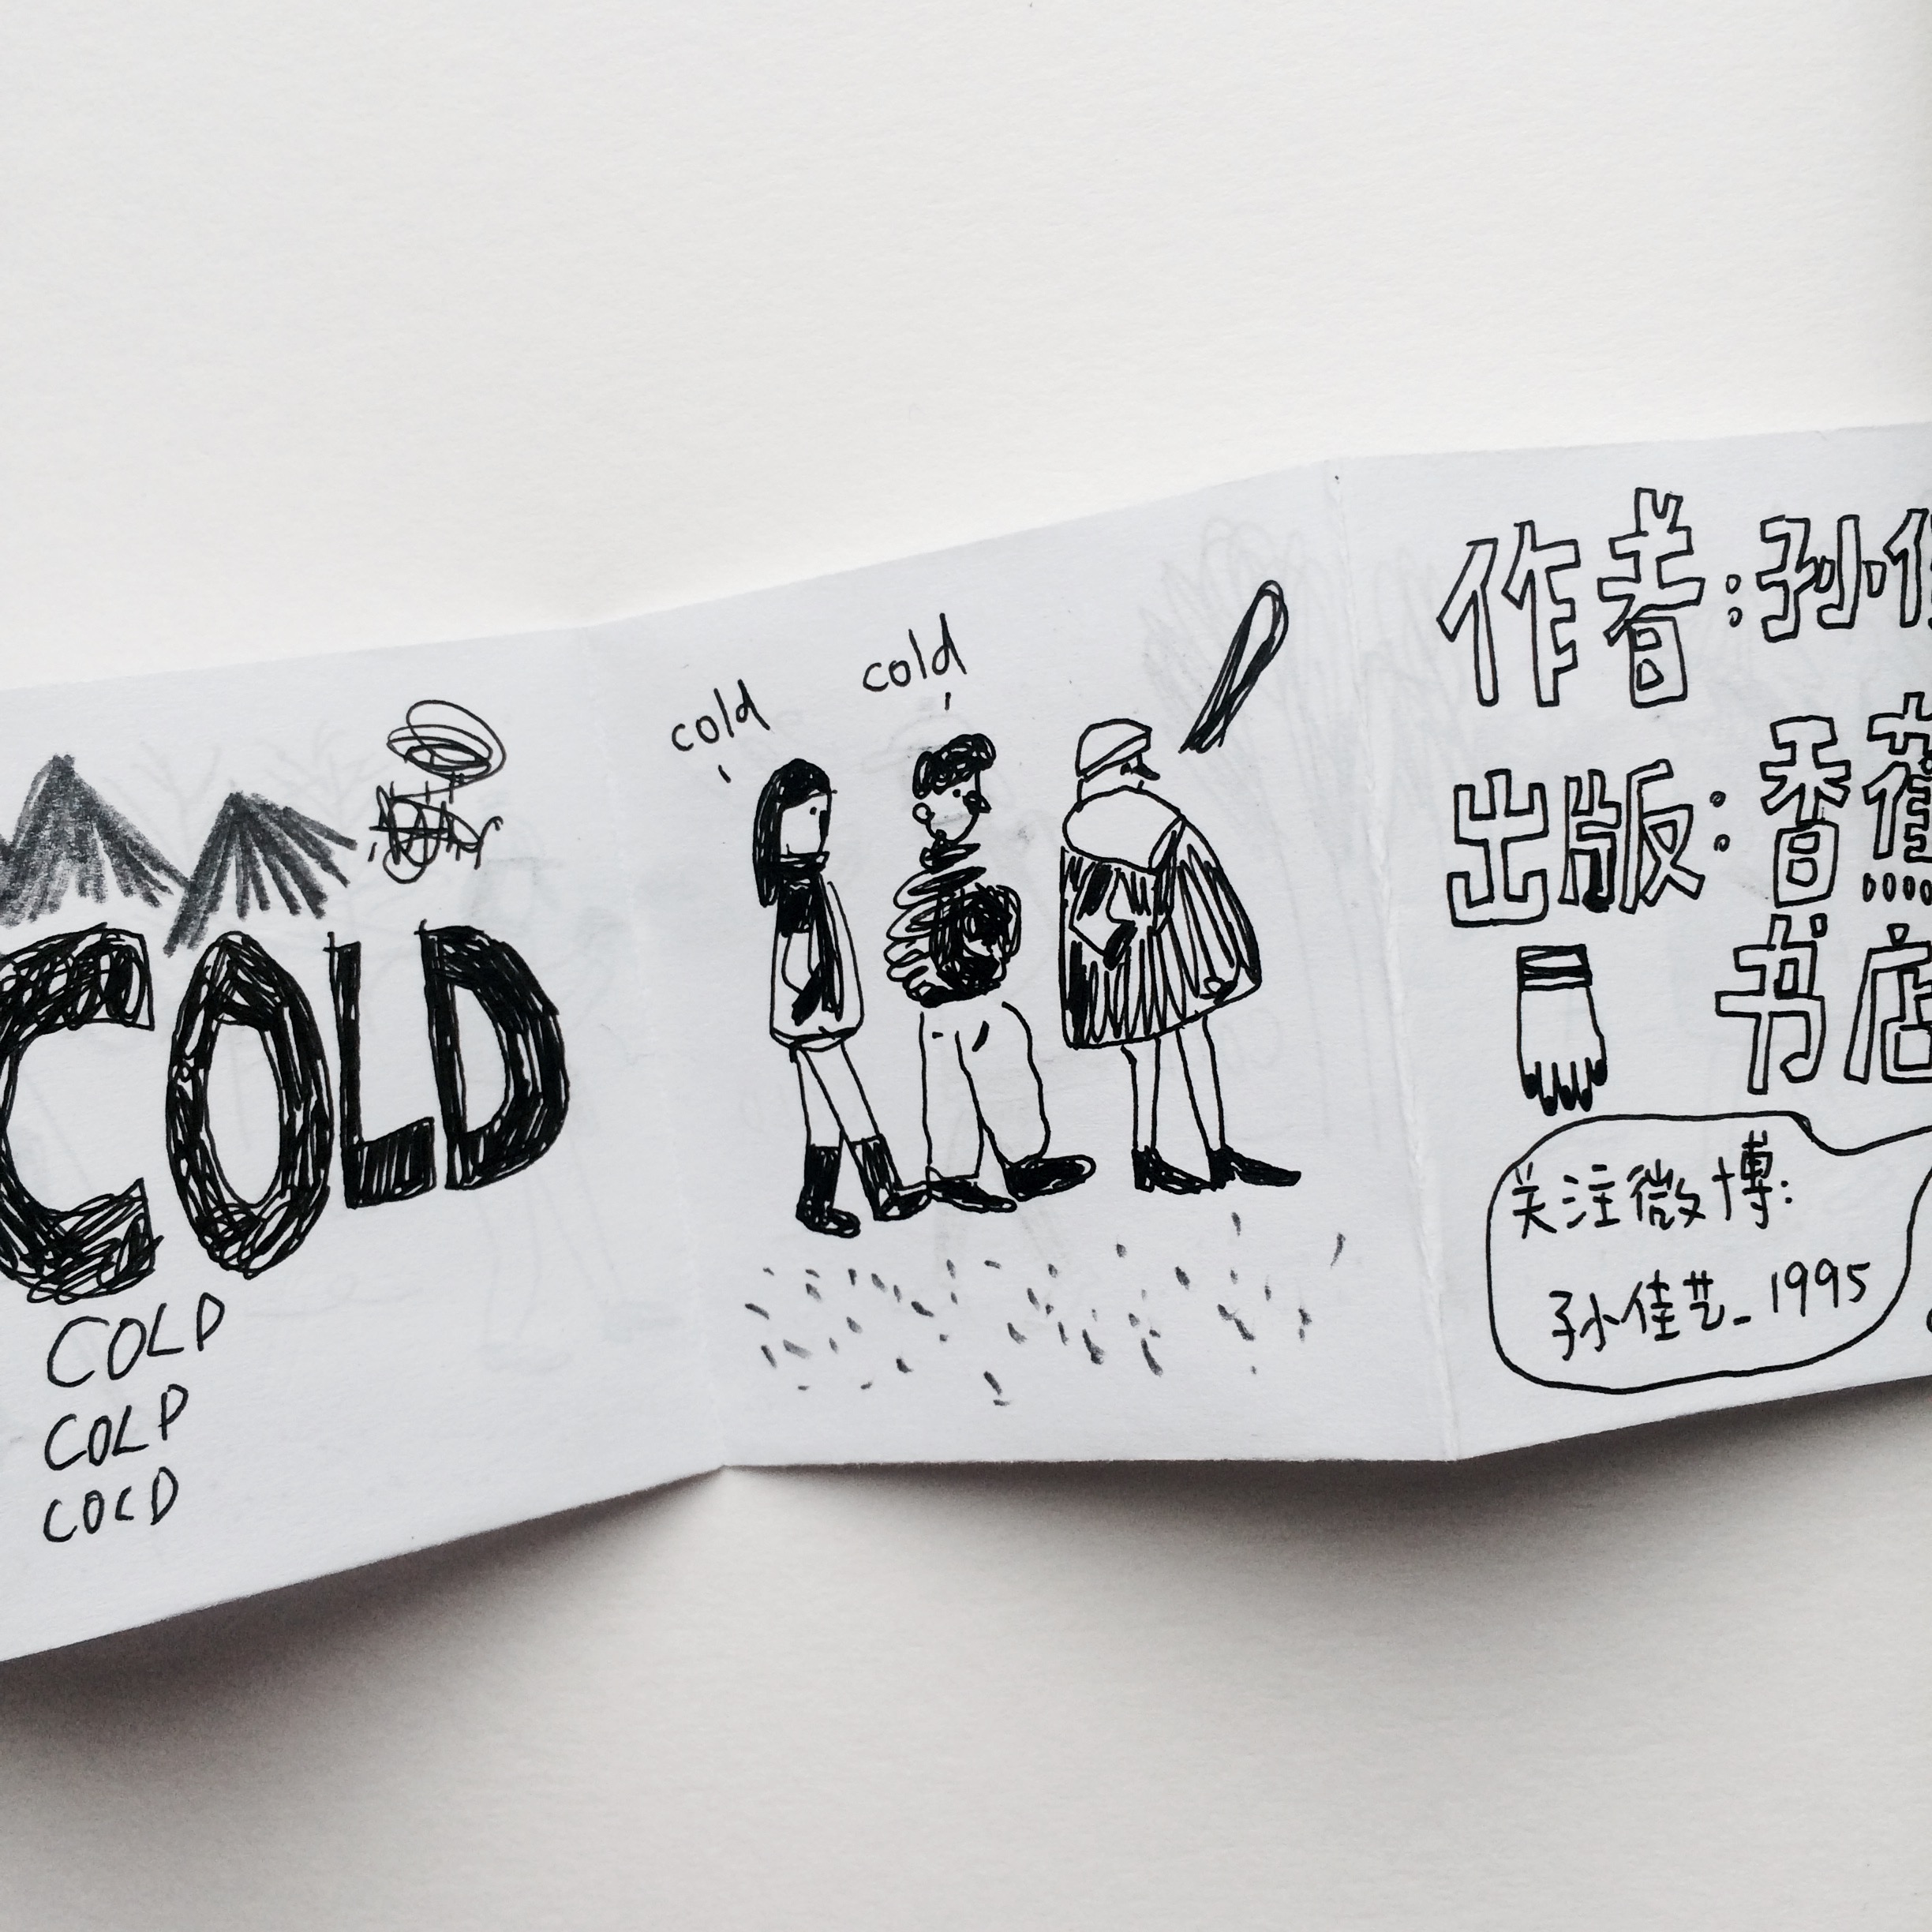 COLD
COLD
COLD
COLD
cold
cold
作者:孙佳
出版:香蕉
书店
关注微博:
孙佳艺_1995